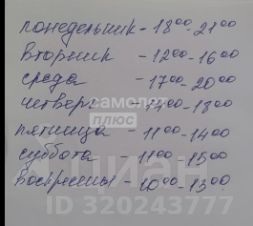 понедельник - 18⁰⁰-21⁰⁰
вторник - 12⁰⁰-16⁰⁰
среда - 17⁰⁰-20⁰⁰
четверг - ⁰⁰-18⁰⁰
самолет
плюс
пятница - 11⁰⁰-14⁰⁰
суббота - 11⁰⁰-15⁰⁰
воскресенье - 10⁰⁰-13⁰⁰
циан
ID 320243777